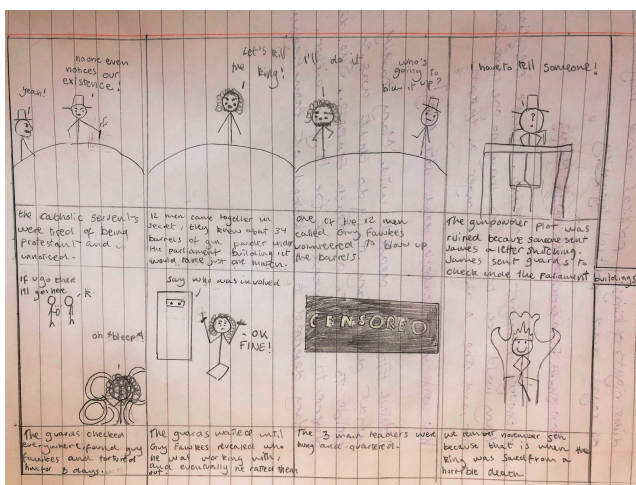 yeah!
no one even
notices our
existence!
Let's kill
the king!
I'll do it
who's
going to
blow it up?
I have to tell someone!
the catholic servents
were tired of being
protestant and
unnoticed.
12 men came together in
secret, they knew about 34
barrels of gun powder under
the parliament building it
would take just one match.
one of the 12 men
called Guy Fawkes
volunteered to blow up
the barrels.
The gunpowder Plot was
ruined because someone sent
James a letter snitching.
James sent guards to
check unde the Paliament buildings
If u go there
I'll go here
K.
oh *bleep*!
say who was involved
- OK
FINE!
CENSORED
The guards checked
everywhere, found guy
fawkes and tortured
him for 3 days.
The guards waited until
Guy Fawkes revealed who
he was working with,
and eventually he ratted them
out.
The 3 main leaders were
hung and quartered.
we rember november 5th
because that is when the
King was saved from a
horrible death